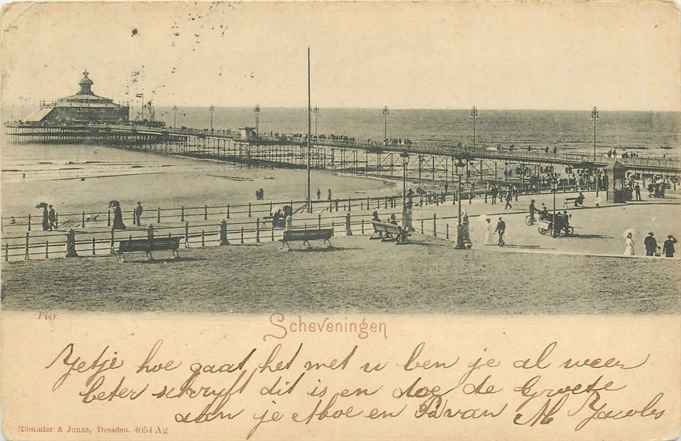 Pier
Scheveningen
Jetje hoe gaat het met u ben je al weer
beter schryft dit is en doe de Groete
aan je en B van M Jacobs
Stengel & Co., Dresden. 4054 Ag